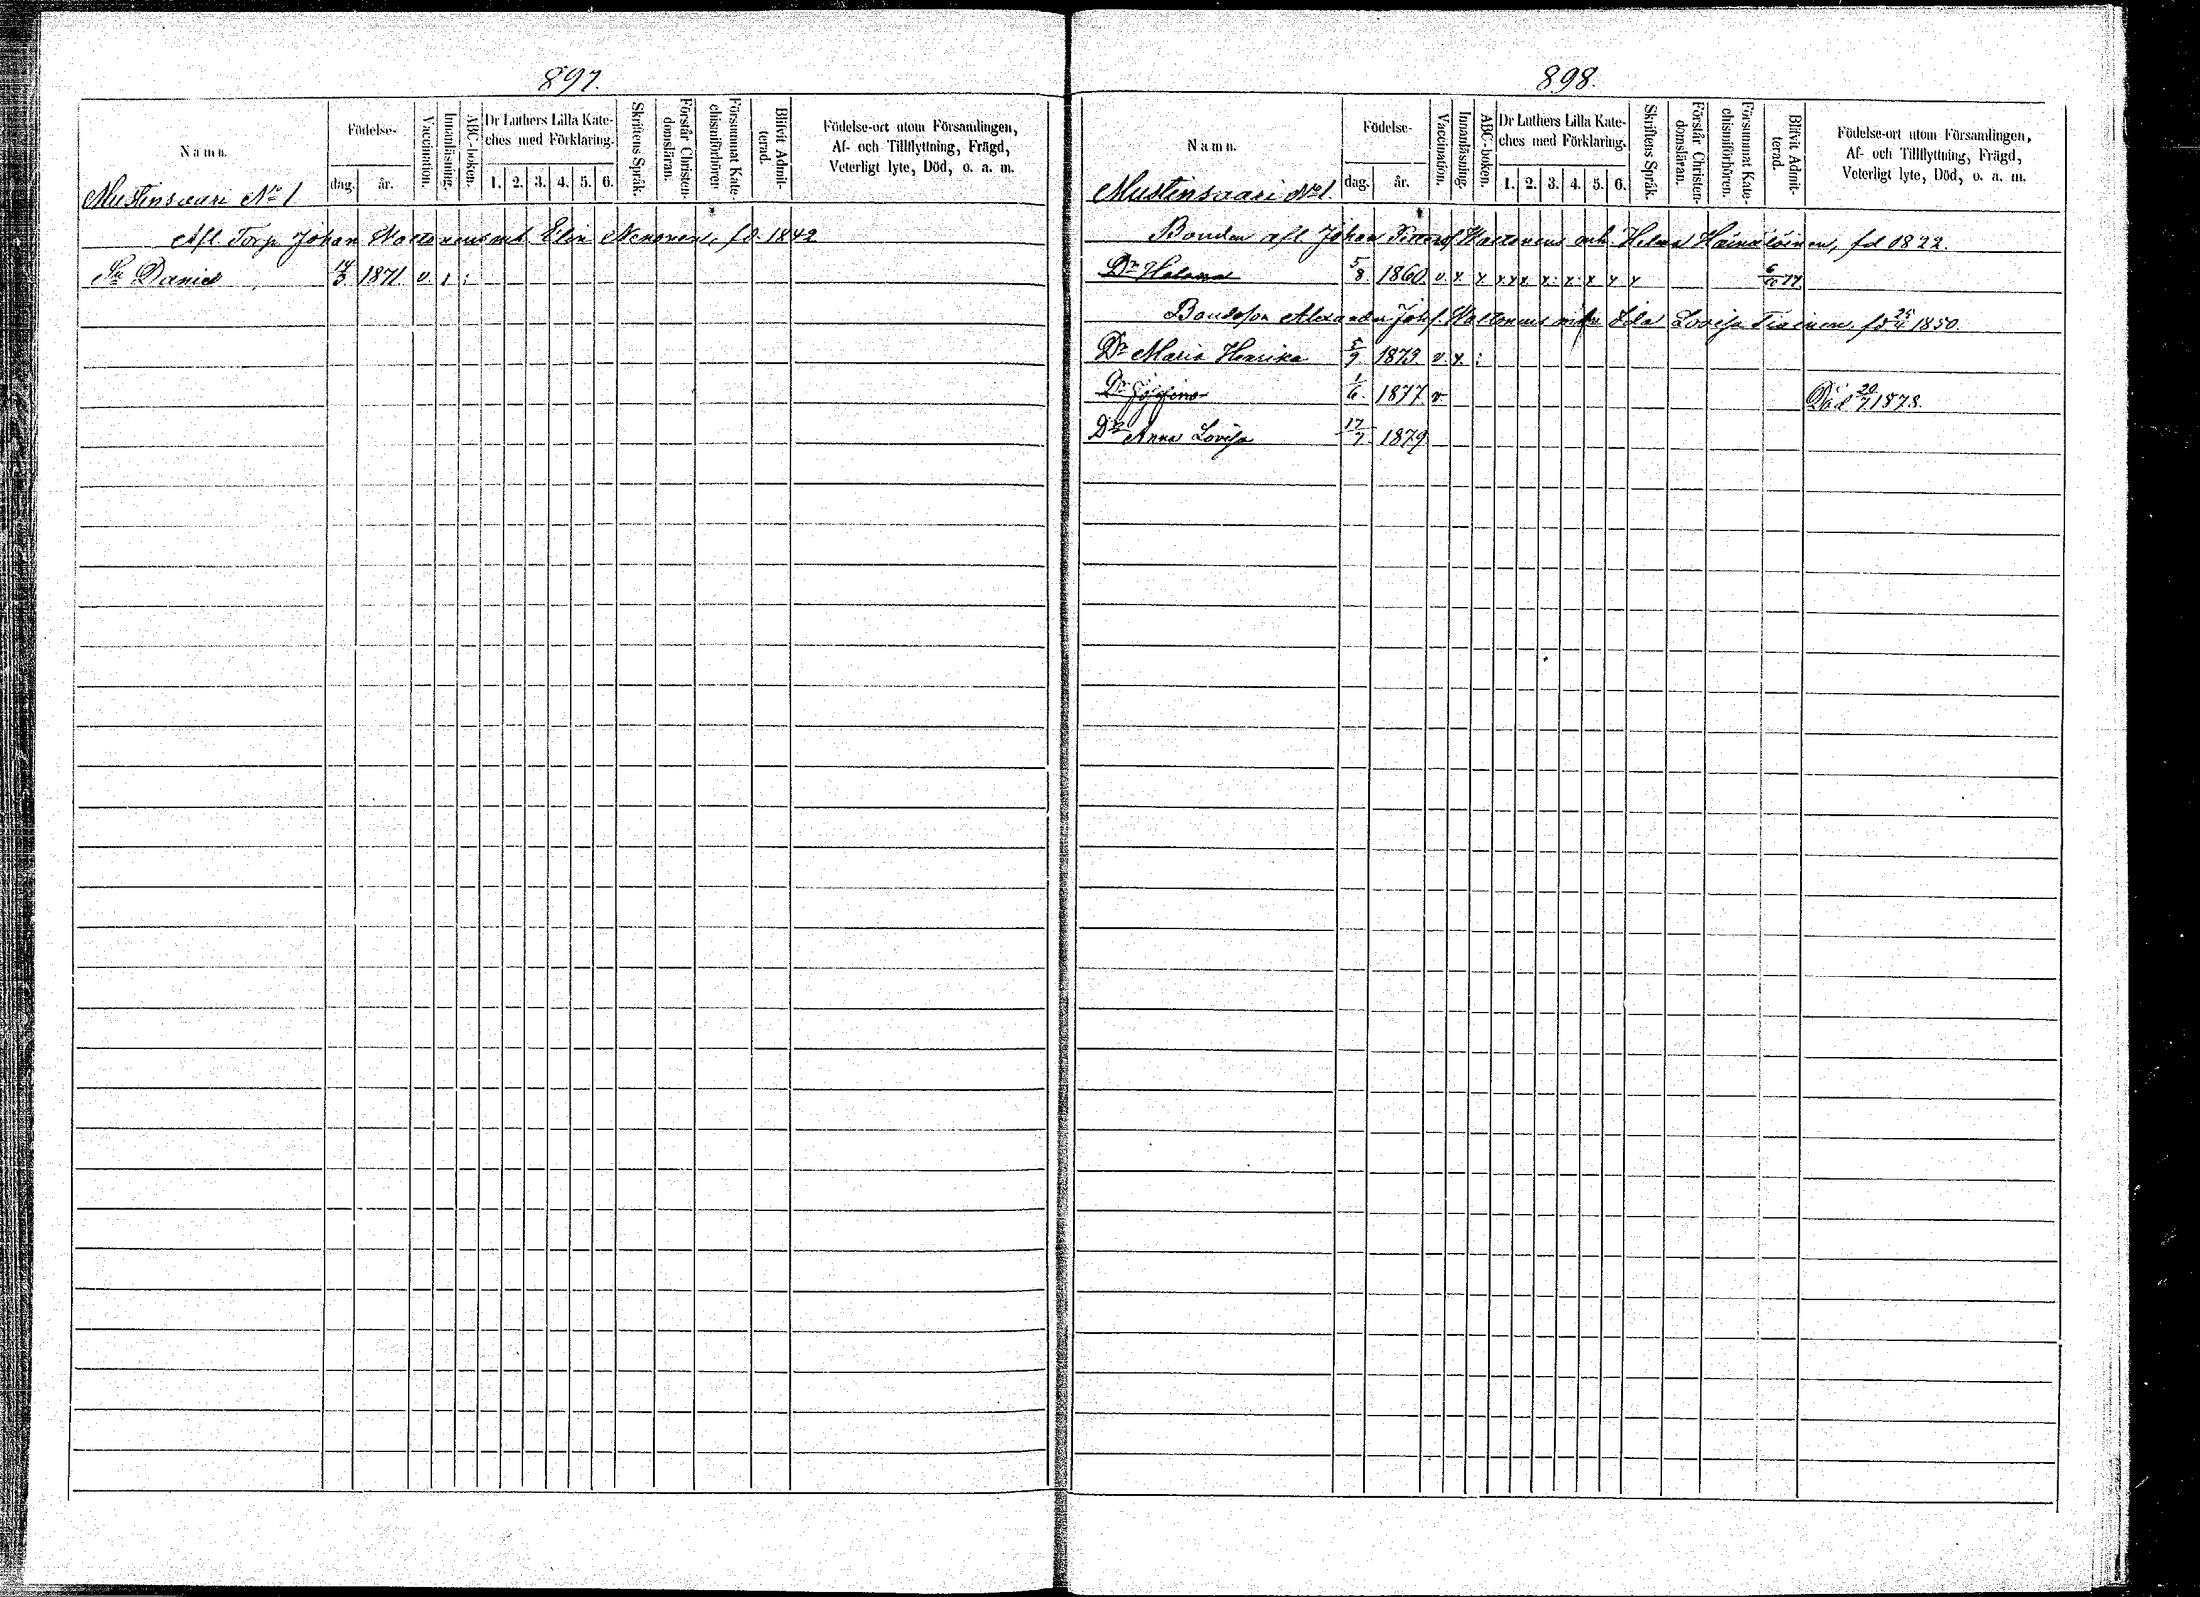 897.
Namn.
Födelse-
dag. år.
Vaccination.
Innanläsning.
ABC-boken.
Dr Luthers Lilla Kate-
ches med Förklaring.
1. 2. 3. 4. 5. 6.
Skriftens Språk.
Förstår Christen-
domsläran.
Försummat Kate-
chismiförhören
Blifvit Admit-
terad.
Födelse-ort utom Församlingen,
Af- och Tillflyttning, Frägd,
Veterligt lyte, Död, o. a. m.
Mustinsvaari No 1
Afl. Torp. Johan enk. Elin Nenonen, fd. 1842
Sn Daniel 1871. v.
898.
Namn.
Födelse-
dag. år.
Vaccination.
Innanläsning.
ABC-boken.
Dr Luthers Lilla Kate-
ches med Förklaring.
1. 2. 3. 4. 5. 6.
Skriftens Språk.
Förstår Christen-
domsläran.
Försummat Kate-
chismiförhören.
Blifvit Admit-
terad.
Födelse-ort utom Församlingen,
Af- och Tillflyttning, Frägd,
Veterligt lyte, Död, o. a. m.
Mustinsvaari No 1.
Bonden afl. Johan enk. Helena fd 1822.
Dr Helena 5/8. 1860. v. x x x x x. x. x. x x x 77.
Bondeson Alexander Joh.s. Ida Lovisa fd 1850.
Dr Maria Henrika 5/9 1873 v. x. :
Dr Josefina 1/6. 1877. v Död 20/7 1878.
Dr Anna Lovisa 17/7 1879